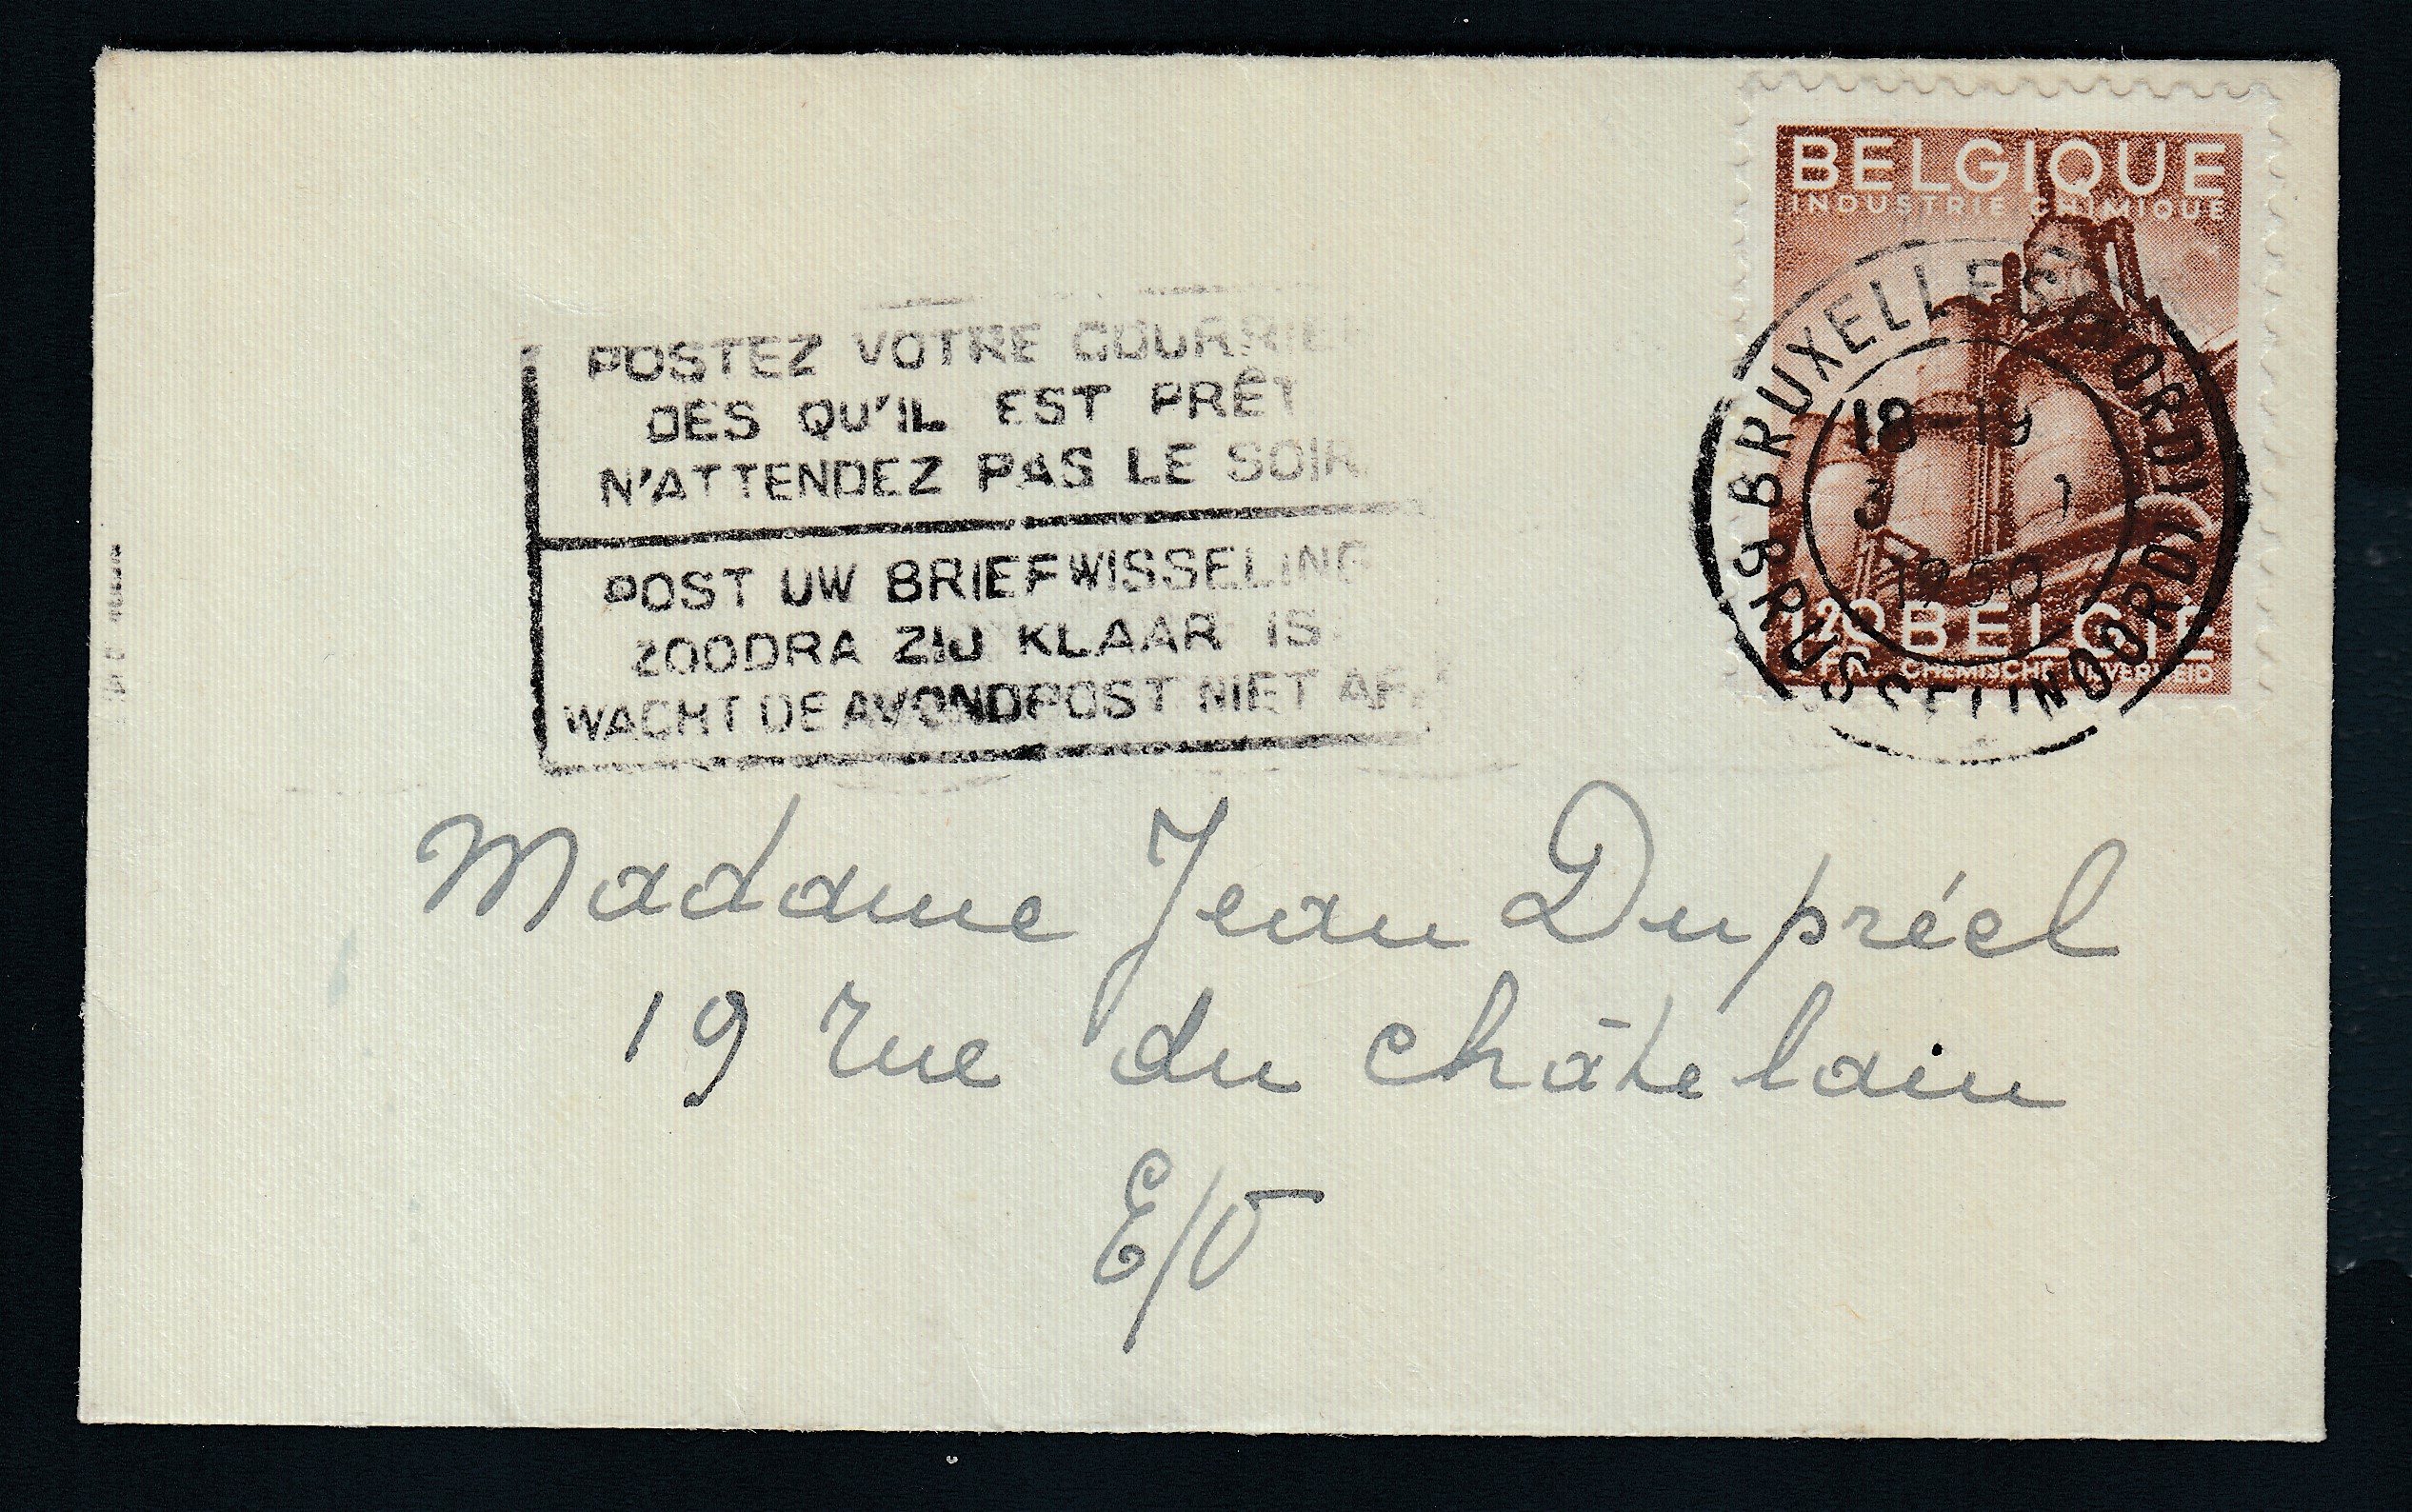 BELGIQUE
INDUSTRIE CHIMIQUE
1,20 BELGIË
FR. CHEMISCHE NIJVERHEID
BRUXELLES (NORD)
BRUSSEL (NOORD)
18-19
3 1
1950
POSTEZ VOTRE COURRIER
DÈS QU'IL EST PRÊT
N'ATTENDEZ PAS LE SOIR
POST UW BRIEFWISSELING
ZOODRA ZIJ KLAAR IS
WACHT DE AVONDPOST NIET AF
Madame Jean Dupréel
19 rue du châtelain
E/V